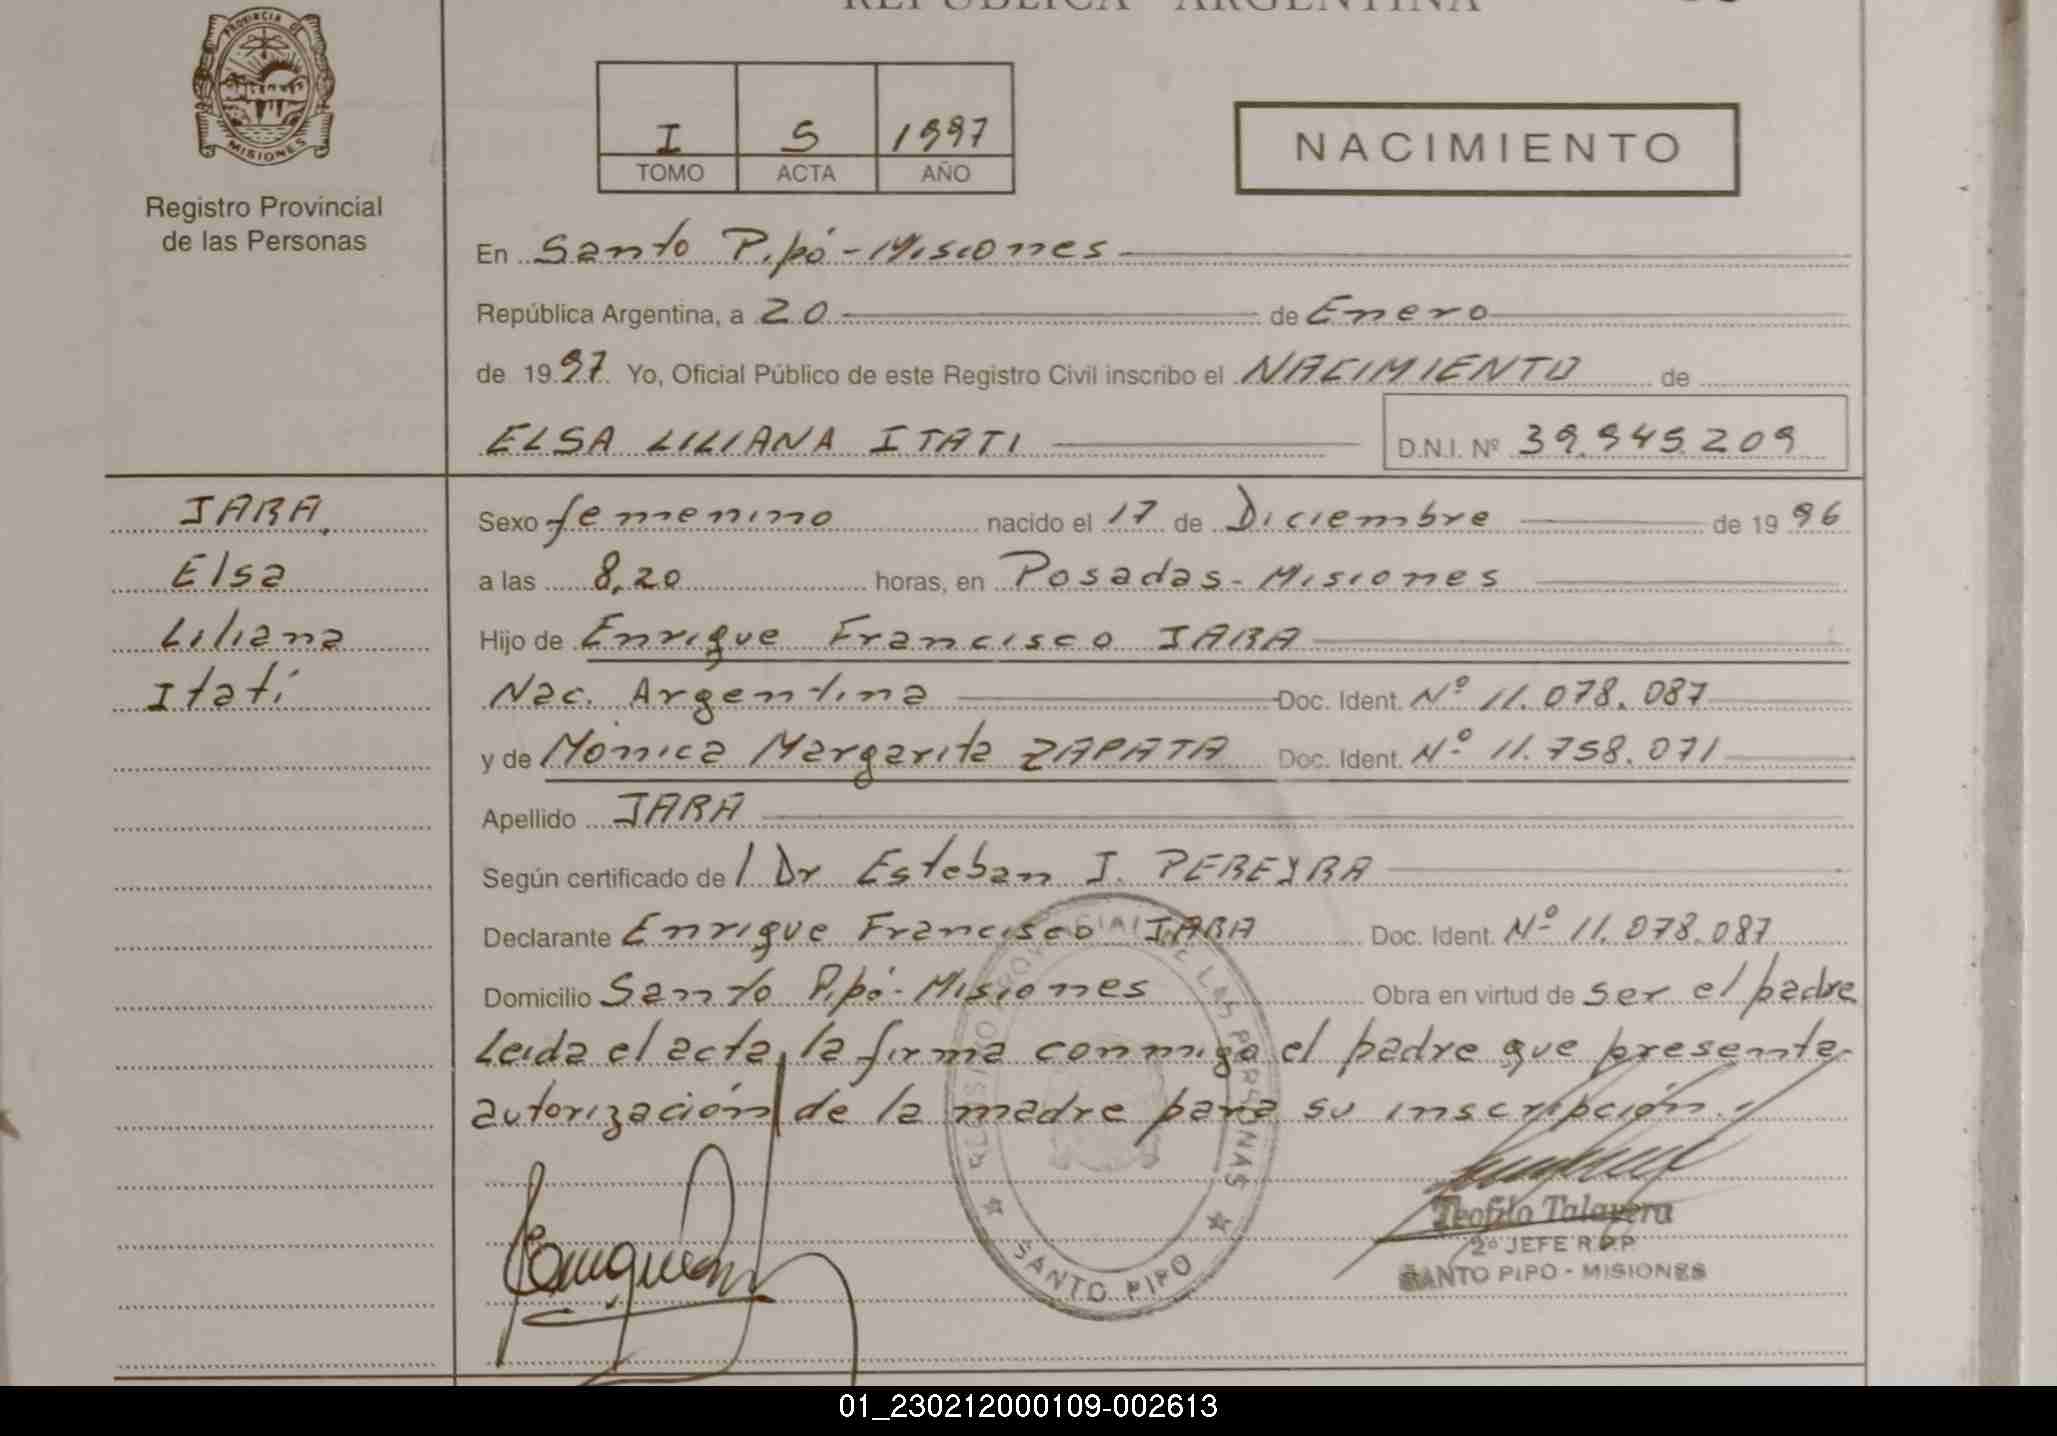 REPÚBLICA ARGENTINA
PROVINCIA DE
MISIONES
Registro Provincial
de las Personas
I 5 1997
TOMO ACTA AÑO
NACIMIENTO
En Santo Pipó - Misiones
República Argentina, a 20 de Enero
de 1997. Yo, Oficial Público de este Registro Civil inscribo el NACIMIENTO de
ELSA LILIANA ITATI D.N.I. Nº 39.945.209
JARA
Elsa
Liliana
Itatí
Sexo femenino nacido el 17 de Diciembre de 1996
a las 8,20 horas, en Posadas - Misiones
Hijo de Enrique Francisco JARA
Nac. Argentina Doc. Ident. Nº 11.078.087
y de Mónica Margarita ZAPATA Doc. Ident. Nº 11.758.071
Apellido JARA
Según certificado de / Dr Esteban J. PEREYRA
Declarante Enrique Francisco JARA Doc. Ident. Nº 11.078.087
Domicilio Santo Pipó - Misiones Obra en virtud de ser el padre
Leida el acta, la firma conmigo el padre que presenta
autorización de la madre para su inscripción.
REGISTRO PROVINCIAL DE LAS PERSONAS
SANTO PIPO
Teofilo Talavera
2º JEFE R.P.P.
SANTO PIPO - MISIONES
01_230212000109-002613